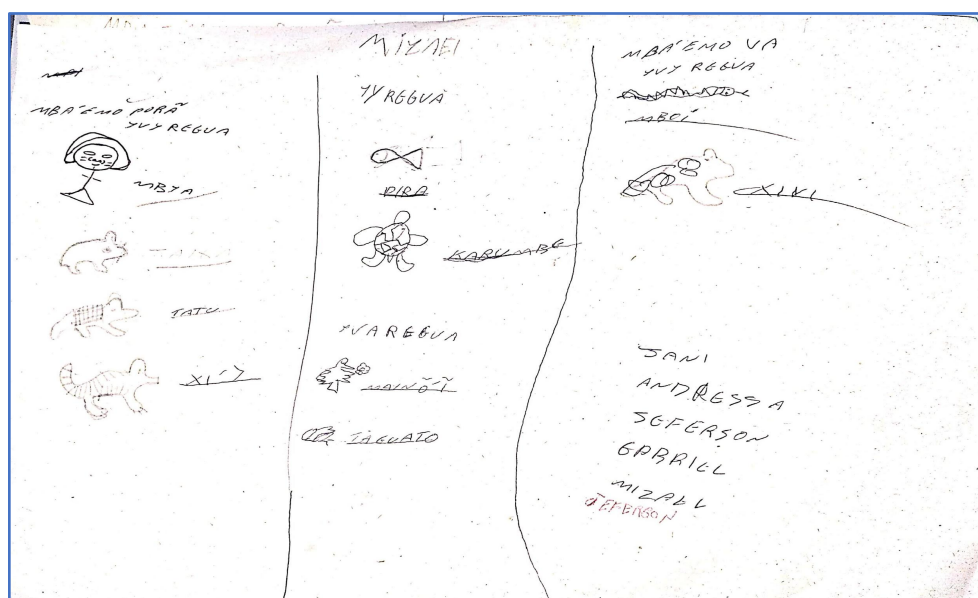 MBA'EMO PORÃ
YVY REGUA
MBYA
TATU
XI'Y
YY REGUA
PIRA
KARUMBE
YVA REGUA
MAINÕ'Ĩ
TAGUATO
MBA'EMO VA
YVY REGUA
MBOI
XIVI
SANI
ANDRESSA
SEFERSON
GABRIEL
MIZAEL
JEFERSON